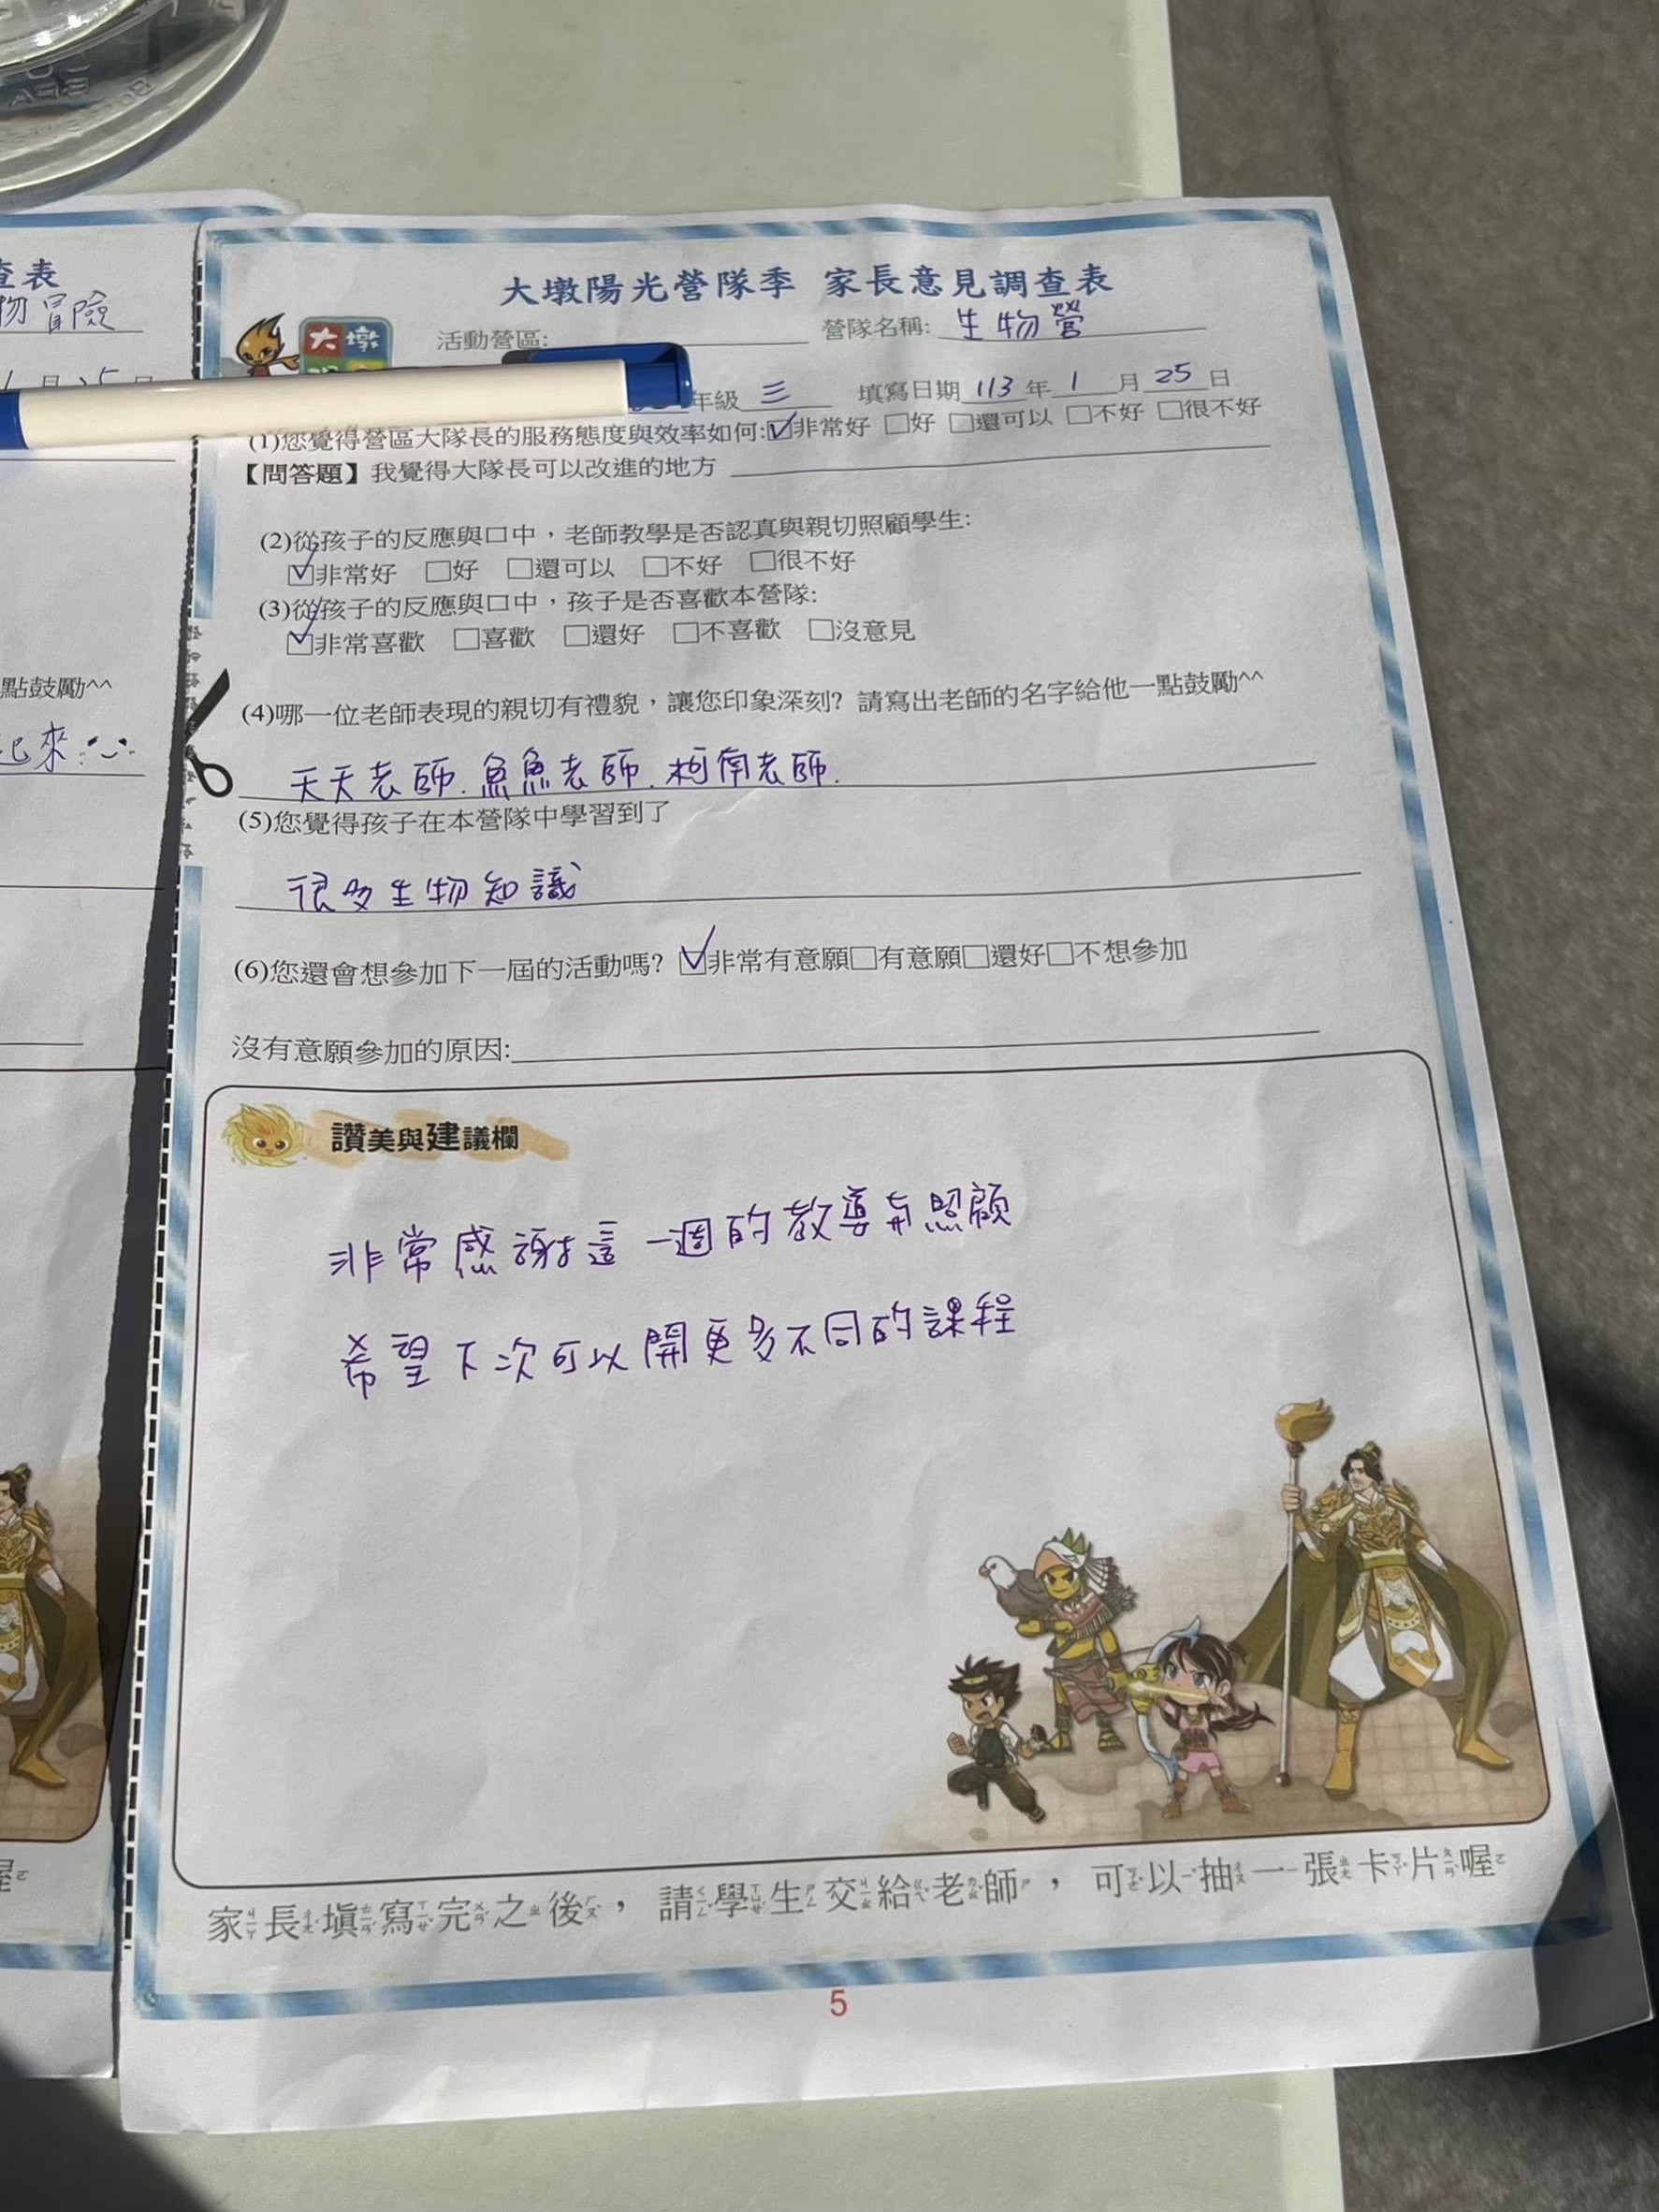 大墩陽光營隊季 家長意見調查表
大墩
活動營區: 營隊名稱: 生物營
年級 三 填寫日期 113 年 1 月 25 日
(1)您覺得營區大隊長的服務態度與效率如何:☑非常好 □好 □還可以 □不好 □很不好
【問答題】我覺得大隊長可以改進的地方
(2)從孩子的反應與口中，老師教學是否認真與親切照顧學生:
☑非常好 □好 □還可以 □不好 □很不好
(3)從孩子的反應與口中，孩子是否喜歡本營隊:
☑非常喜歡 □喜歡 □還好 □不喜歡 □沒意見
(4)哪一位老師表現的親切有禮貌，讓您印象深刻? 請寫出老師的名字給他一點鼓勵^^
天天老師.魚魚老師.柯南老師.
(5)您覺得孩子在本營隊中學習到了
很多生物知識
(6)您還會想參加下一屆的活動嗎? ☑非常有意願□有意願□還好□不想參加
沒有意願參加的原因:
讚美與建議欄
非常感謝這一週的教導與照顧
希望下次可以開更多不同的課程
家長填寫完之後，請學生交給老師，可以抽一張卡片喔
5
查表
物冒險
月 25 日
點鼓勵^^
起來
喔